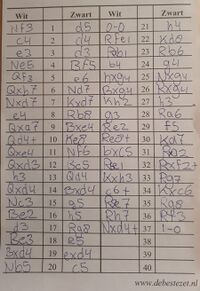 Wit Zwart Wit Zwart
Nf3 1 d5 0-0 21 h4
c4 2 d4 Rfe1 22 Kh8
e3 3 d3 23 Rb6
Ne5 4 Bf5 b4 24 g4
Qf3 5 e6 hxg4 25 Nxg4
Qxb7 6 Nd7 Bxg4 26 Rxg4
Nxd7 7 Kxd7 Kh2 27 h3
e4 8 Rb8 g3 28 Rg6
Qxa7 9 Bxe4 Re2 29 f5
Qd4+ 10 Ke8 30 Kd7
Qxe4 11 Nf6 bxc5 31
Qxd3 12 Bc5 Re1 32 Rxf2+
h3 13 Qd4 Kxh3 33 Rg7
Qxd4 14 Bxd4 c6+ 34 Kxc6
Nc3 15 g5 Re7 35 Rg8
Be2 16 h5 Rh7 36 Rf3
d3 17 Rg8 Nxd4+ 37 1-0
Be3 18 e5 38
Bxd4 19 exd4 39
Nb5 20 c5 40
www.debestezet.nl